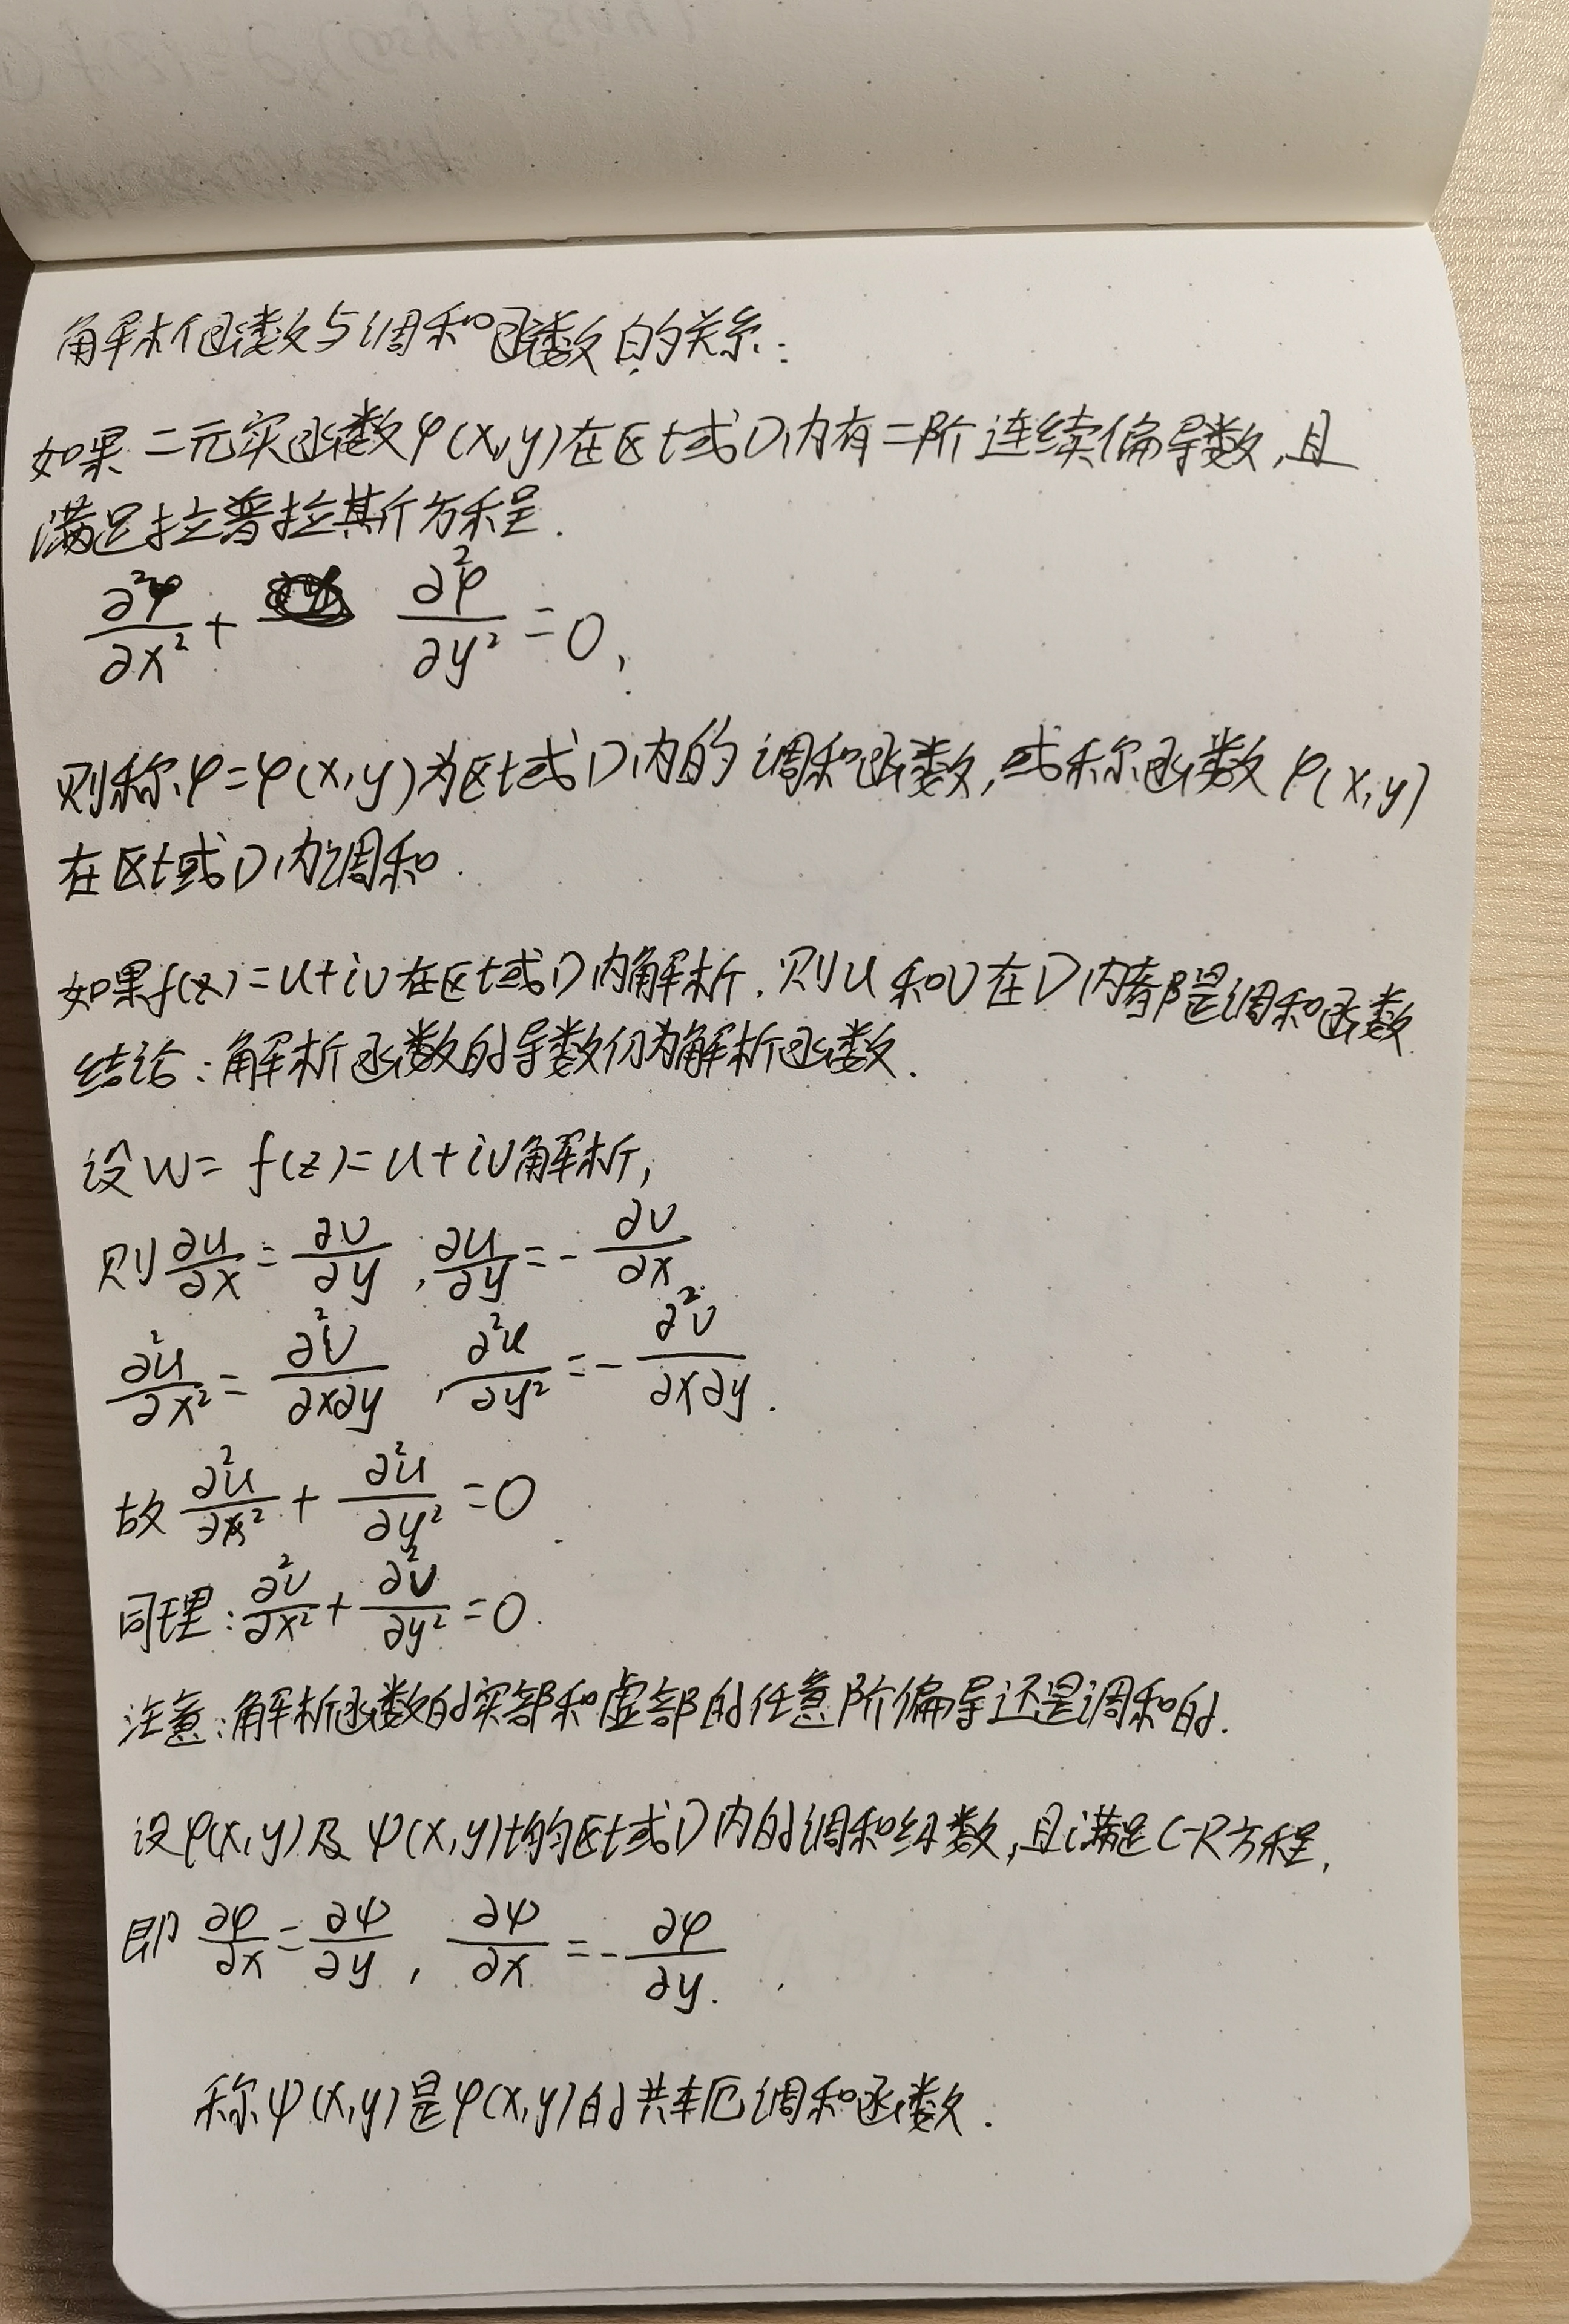 解析函数与调和函数的关系:
如果二元实函数φ(x,y)在区域D内有二阶连续偏导数,且
满足拉普拉斯方程.
∂²φ/∂x² + ∂²φ/∂y² = 0,
则称φ=φ(x,y)为区域D内的调和函数,或称函数φ(x,y)
在区域D内调和.
如果f(z)=u+iv在区域D内解析,则u和v在D内都是调和函数
结论:解析函数的导数仍为解析函数.
设w=f(z)=u+iv解析,
则 ∂u/∂x = ∂v/∂y , ∂u/∂y = -∂v/∂x
∂²u/∂x² = ∂²v/∂x∂y , ∂²u/∂y² = -∂²v/∂x∂y.
故 ∂²u/∂x² + ∂²u/∂y² = 0
同理: ∂²v/∂x² + ∂²v/∂y² = 0.
注意:解析函数的实部和虚部的任意阶偏导还是调和的.
设φ(x,y)及ψ(x,y)均的区域D内的调和级数,且满足C-R方程,
即 ∂φ/∂x = ∂ψ/∂y , ∂ψ/∂x = -∂φ/∂y.
称ψ(x,y)是φ(x,y)的共轭调和函数.